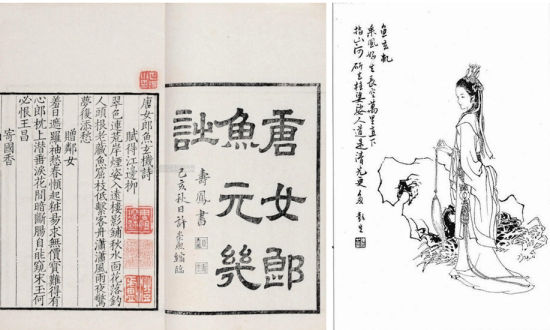 唐女郎
魚元幾
詩
壽鳳書
己亥秋日許兆熊縮臨
唐女郎魚玄機詩
賦得江邊柳
翠色連荒岸煙姿入遠樓影鋪秋水面花落釣
人頭根老藏魚窟枝低繫客舟瀟瀟風雨夜驚
夢復添愁
贈鄰女
羞日遮羅袖愁春懶起粧易求無價寶難得有
心郎枕上潛垂淚花間暗斷腸自能窺宋玉何
必恨王昌
寄國香
魚玄机
乘風好去長空萬里直下
看山河斫去桂婆娑人道是清光更多